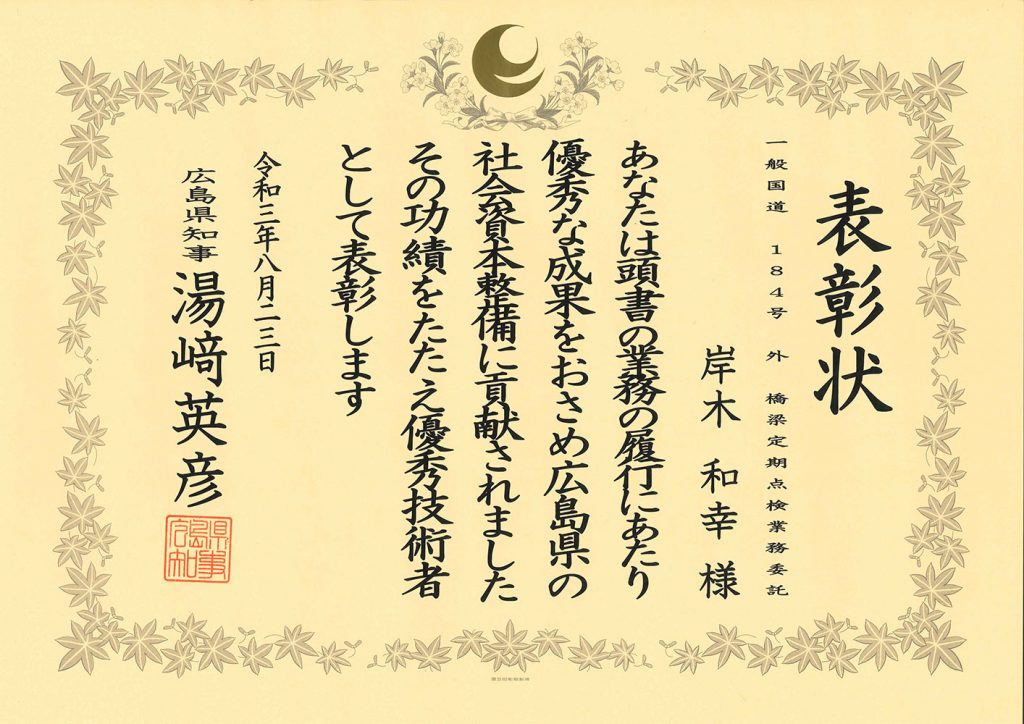 表彰状
一般国道　184号　外　橋梁定期点検業務委託
岸木　和幸　様
あなたは頭書の業務の履行にあたり
優秀な成果をおさめ広島県の
社会資本整備に貢献されました
その功績をたたえ優秀技術者
として表彰します
令和三年八月二三日
広島県知事　湯﨑英彦
広島県知事